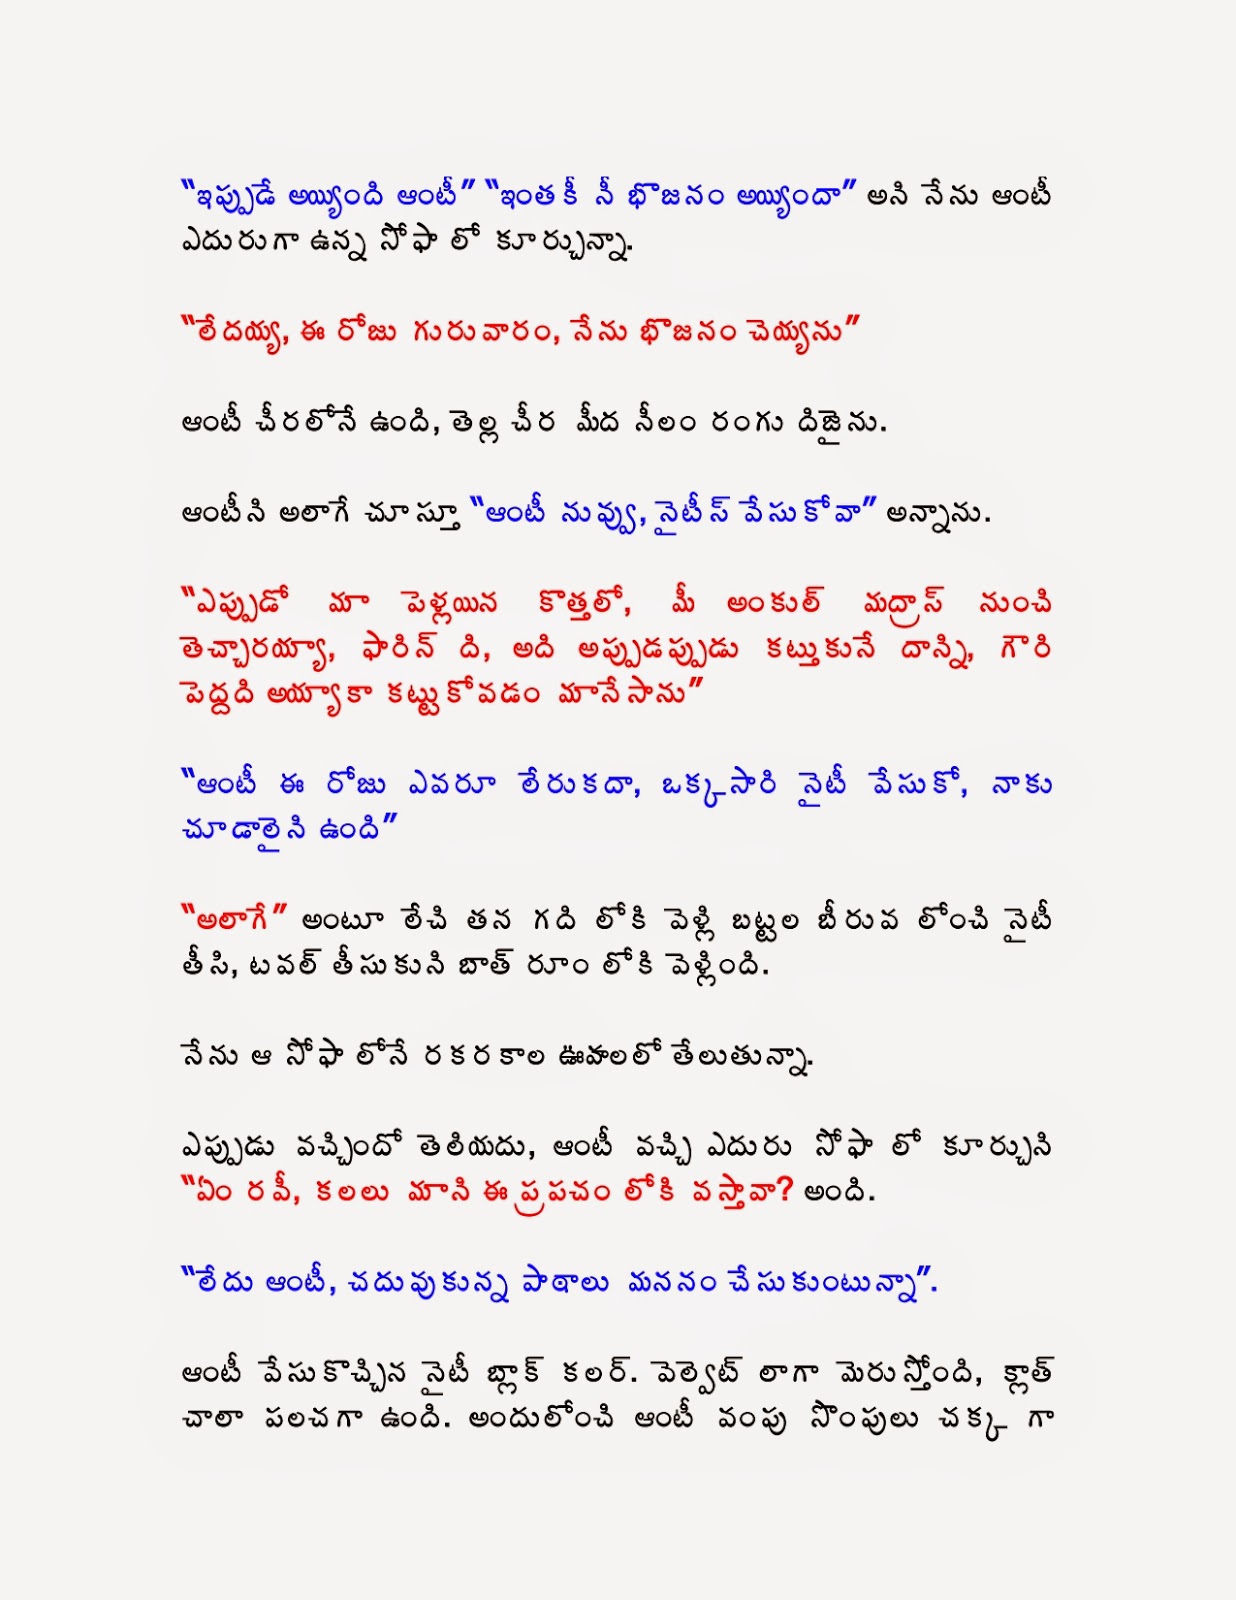 “ఇప్పుడే అయ్యింది ఆంటీ” “ఇంతకీ నీ భొజనం అయ్యిందా” అని నేను ఆంటీ
ఎదురుగా ఉన్న సోఫా లో కూర్చున్నా.
“లేదయ్య, ఈ రోజు గురువారం, నేను భొజనం చెయ్యను”
ఆంటీ చీరలోనే ఉంది, తెల్ల చీర మీద నీలం రంగు దిజైను.
ఆంటీని అలాగే చూస్తూ “ఆంటీ నువ్వు, నైటీస్ వేసుకోవా” అన్నాను.
“ఎప్పుడో మా పెళ్లయిన కొత్తలో, మీ అంకుల్ మద్రాస్ నుంచి
తెచ్చారయ్యా, ఫారిన్ ది, అది అప్పుడప్పుడు కట్తుకునే దాన్ని, గౌరి
పెద్దది అయ్యాకా కట్టుకోవడం మానేసాను”
“ఆంటీ ఈ రోజు ఎవరూ లేరుకదా, ఒక్కసారి నైటీ వేసుకో, నాకు
చూడాలైని ఉంది”
“అలాగే” అంటూ లేచి తన గది లోకి వెళ్లి బట్టల బీరువ లోంచి నైటీ
తీసి, టవల్ తీసుకుని బాత్ రూం లోకి వెళ్లింది.
నేను ఆ సోఫా లోనే రకరకాల ఊహలలో తేలుతున్నా.
ఎప్పుడు వచ్చిందో తెలియదు, ఆంటీ వచ్చి ఎదురు సోఫా లో కూర్చుని
“ఏం రవీ, కలలు మాని ఈ ప్రపచం లోకి వస్తావా? అంది.
“లేదు ఆంటీ, చదువుకున్న పాఠాలు మననం చేసుకుంటున్నా”.
ఆంటీ వేసుకొచ్చిన నైటీ బ్లాక్ కలర్. వెల్వెట్ లాగా మెరుస్తోంది, క్లాత్
చాలా పలచగా ఉంది. అందులోంచి ఆంటీ వంపు సొంపులు చక్క గా